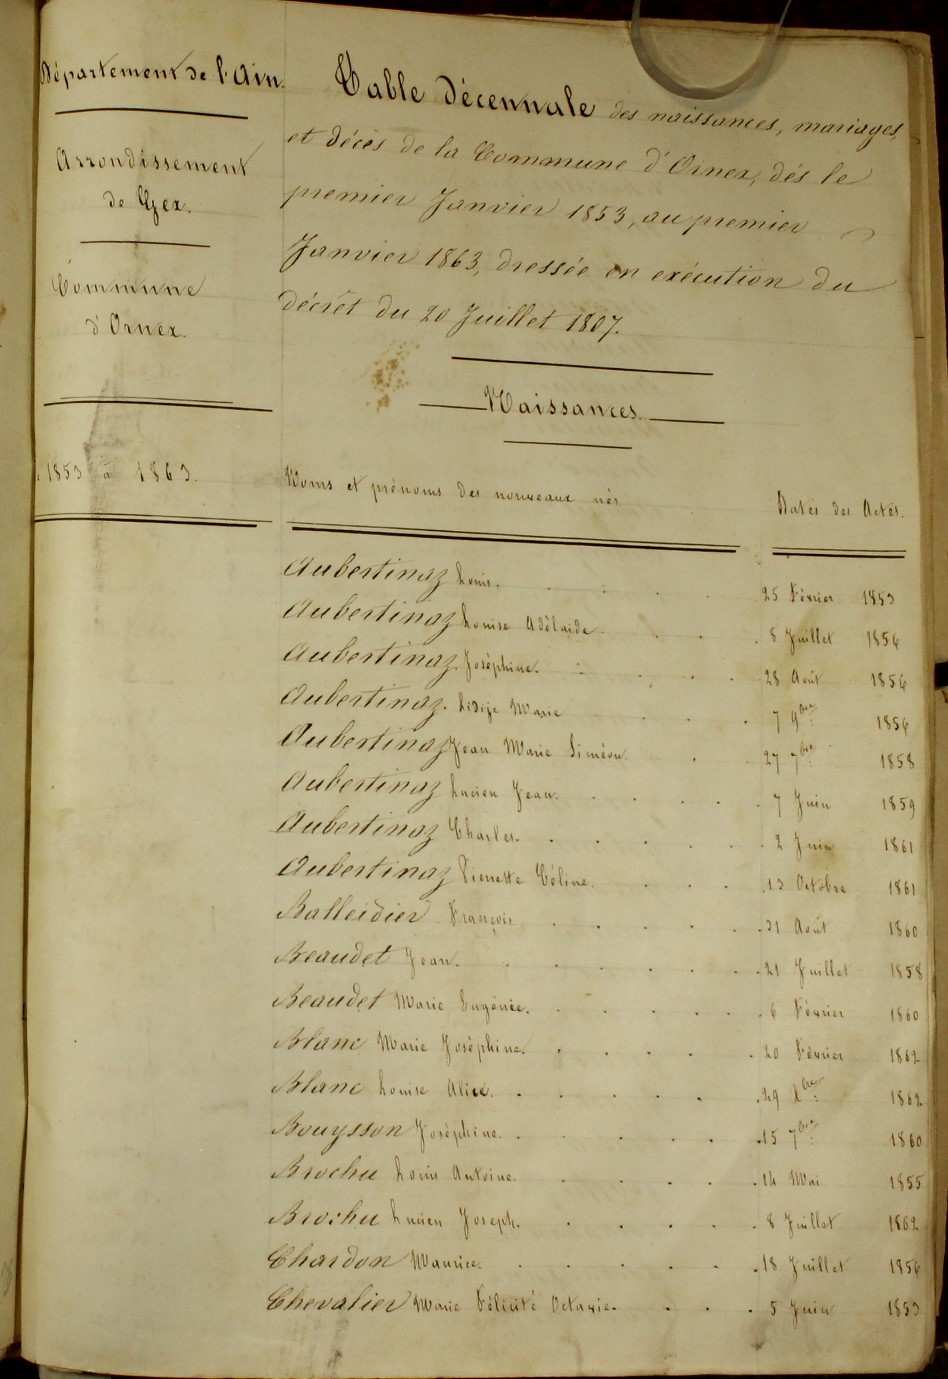 Département de l'Ain.
Arrondissement
de Gex.
Commune
d'Ornex.
1853 à 1863.
Table décennale des naissances, mariages,
et décès de la Commune d'Ornex, dés le
premier Janvier 1853, au premier
Janvier 1863, dressée en exécution du
décrêt du 20 Juillet 1807.
Naissances.
Noms et prénoms des nouveaux nés
Dates des Actes.
Aubertinaz Louis. 25 Février 1853
Aubertinaz Louise Adélaide 8 Juillet 1854
Aubertinaz Joséphine. 28 Août 1856
Aubertinaz Marie 7 9bre 1856
Aubertinaz Jean Marie Siméon 27 7bre 1858
Aubertinaz Lucien Jean. 7 Juin 1859
Aubertinaz Charles. 2 Juin 1861
Aubertinaz Pierrette Céline. 13 Octobre 1861
Balleidier François 31 Août 1860
Beaudet Jean. 21 Juillet 1858
Beaudet Marie Eugénie. 6 Février 1860
Blanc Marie Joséphine. 20 Février 1862
Blanc Louise Alice. 29 1862
Bouysson Joséphine. 15 7bre 1860
Brochu Louis Antoine. 14 Mai 1855
Brochu Lucien Joseph. 8 Juillet 1862
Chardon Maurice. 18 Juillet 1856
Chevalier Marie Félicité Octavie. 5 Juin 1853